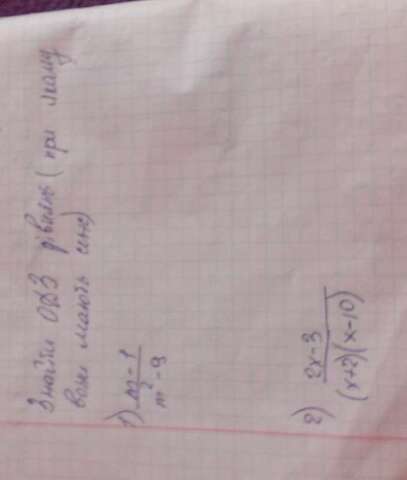 Знайти ОДЗ рівнянь (при якому
вони мають сенс)
1) m-1
m²-9
2) 2x-3
(x+2)(x-10)